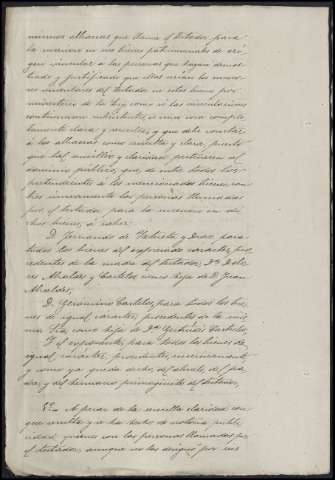 mismos albaceas que llama el testador, para
la sucesion en sus bienes patrimoniales de orí
gen vincular a las personas que hayan demos
trado y justificado que ellas serian los suceso
res vinculares del testador en estos bienes por
ministerio de la Ley como si las vinculaciones
continuaran subsistentes, es una cosa comple
tamente clara y sencilla, y que debe constar
á los albaceas como sencilla y clara, puesto
que tal sencillez y claridad pertenecen al
dominio público, que, de entre todos los
pretendientes á los mencionados bienes, son
las personas llamadas
por el testador para la sucesion en di
chos bienes, á saber:
D. Fernando de y para
todos los bienes del espresado carácter, pro
cedentes de la madre del testador, Dª Dolo
res y como hijo de D. Juan
D. Gerónimo para todos los bie
nes de igual carácter, procedentes de la mis
ma Sra como hijo de Dª Gertrudis
Y el esponente, para todos los bienes de
igual carácter, procedentes,
y como ya queda dicho, del abuelo, del pa
dre, y del hermano primogénito del testador.
5º A pesar de la sencilla claridad con
que resulta y es un hecho de notoria publi
cidad, quienes son las personas llamadas por
el testador, aunque no las designó por sus